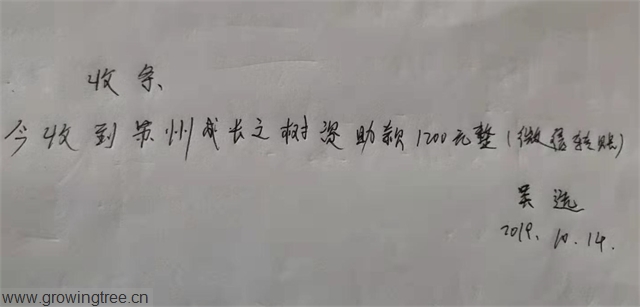 收条
今收到苏州成长之树资助款1200元整(微信转账)
吴
2019.10.14.
www.growingtree.cn